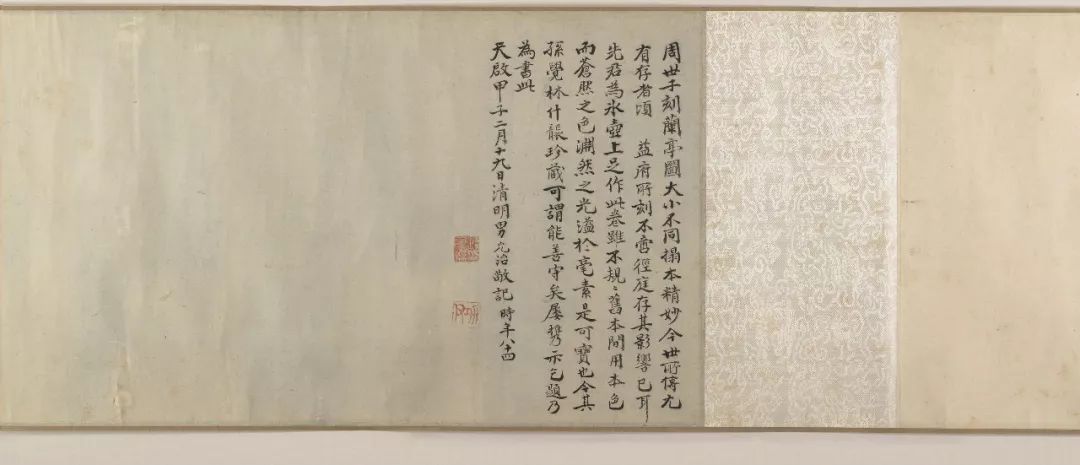 周世子刻蘭亭圖大小不同搨本精妙今世所傳尤
有存者頃 益府所刻不啻徑庭存其影響已耳
先君為氷壺上足作此卷雖不規〻舊本間用本色
而蒼然之色淵然之光溢於毫素是可寶也今其
孫覺林什襲珍藏可謂能善守矣屢攜示乞題乃
為書此
天啟甲子二月十九日清明男元治敬記 時年八十四